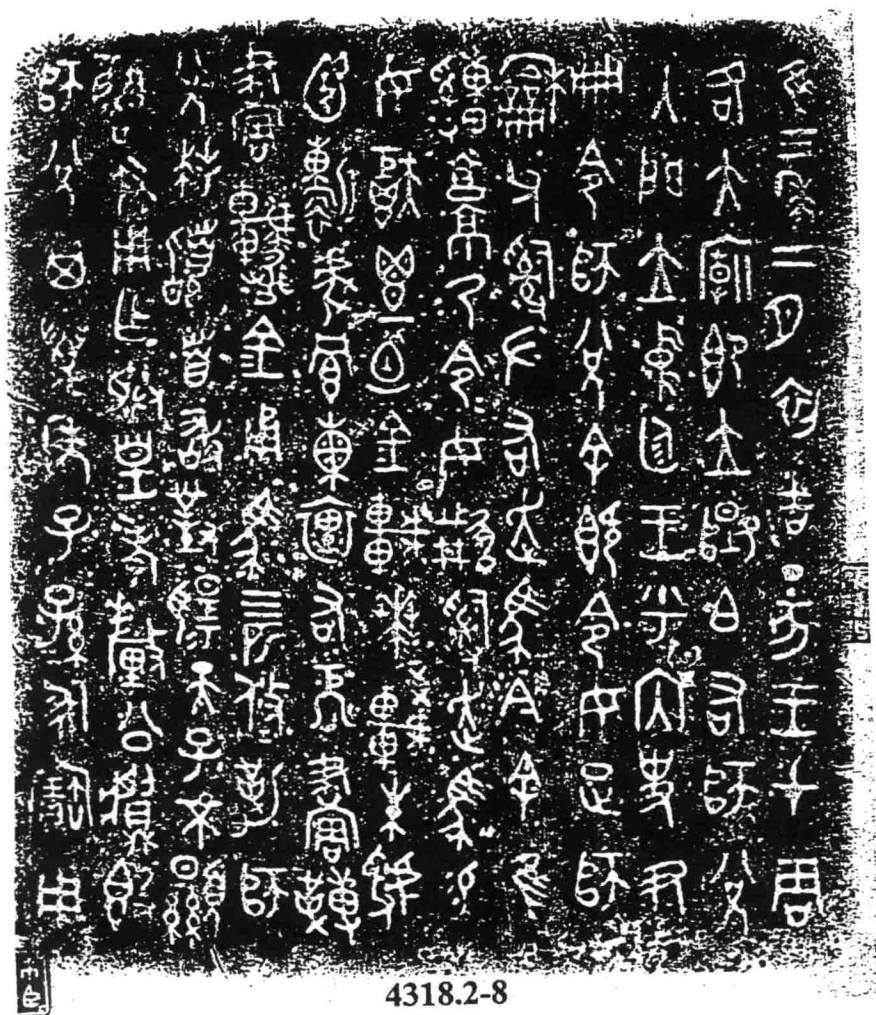 隹三年二月初吉丁亥王才周
各大廟即立𨟭白右師兌
入門立中廷王乎內史尹
冊令師兌余既令女疋師
龢父𤔲左右走馬今余隹
𤕌𩫖乃令令女𤔲走馬易
女秬鬯一卣金車𠦪較朱虢
虎冟熏裏右厄畫
畫金甬馬四匹攸勒師
兌拜𩒨首敢對揚天子不顯
魯休用乍朕皇考釐公簋
師兌其萬年子子孫孫永寶用
4318.2-8